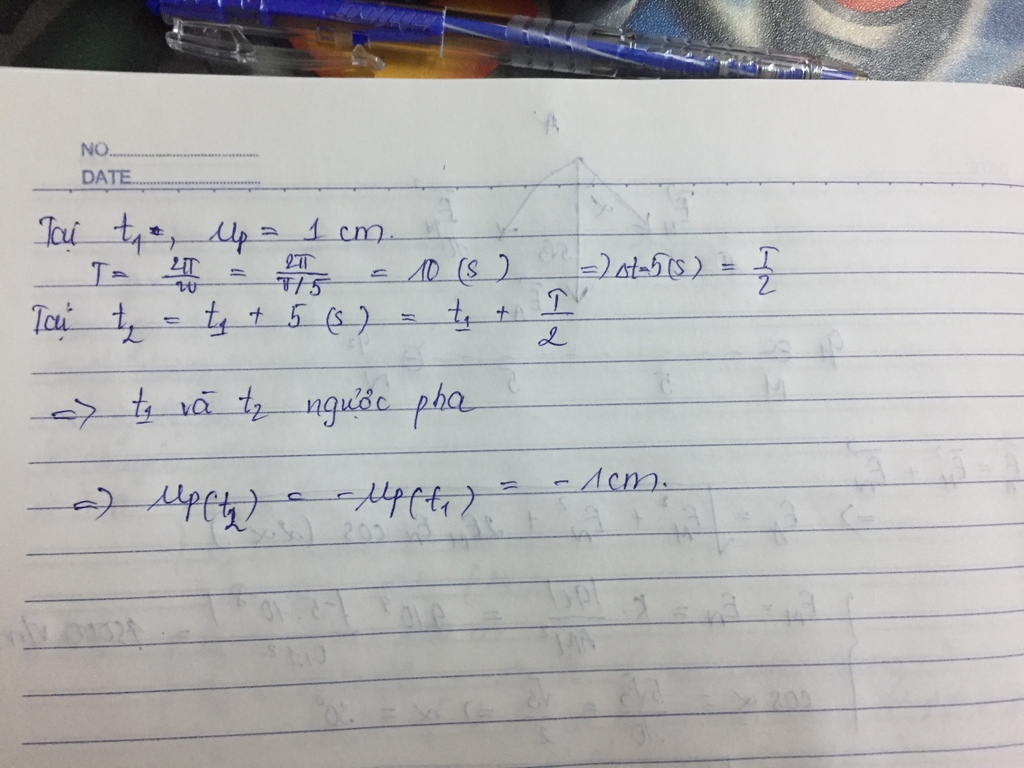 NO.
DATE
Tại t₁, up = 1 cm.
T = 2π/w = 2π/π/5 = 10 (s) => Δt=5(s) = T/2
Tại t₂ = t₁ + 5 (s) = t₁ + T/2
=> t₁ và t₂ ngược pha
=> up(t₂) = -up(t₁) = -1cm.